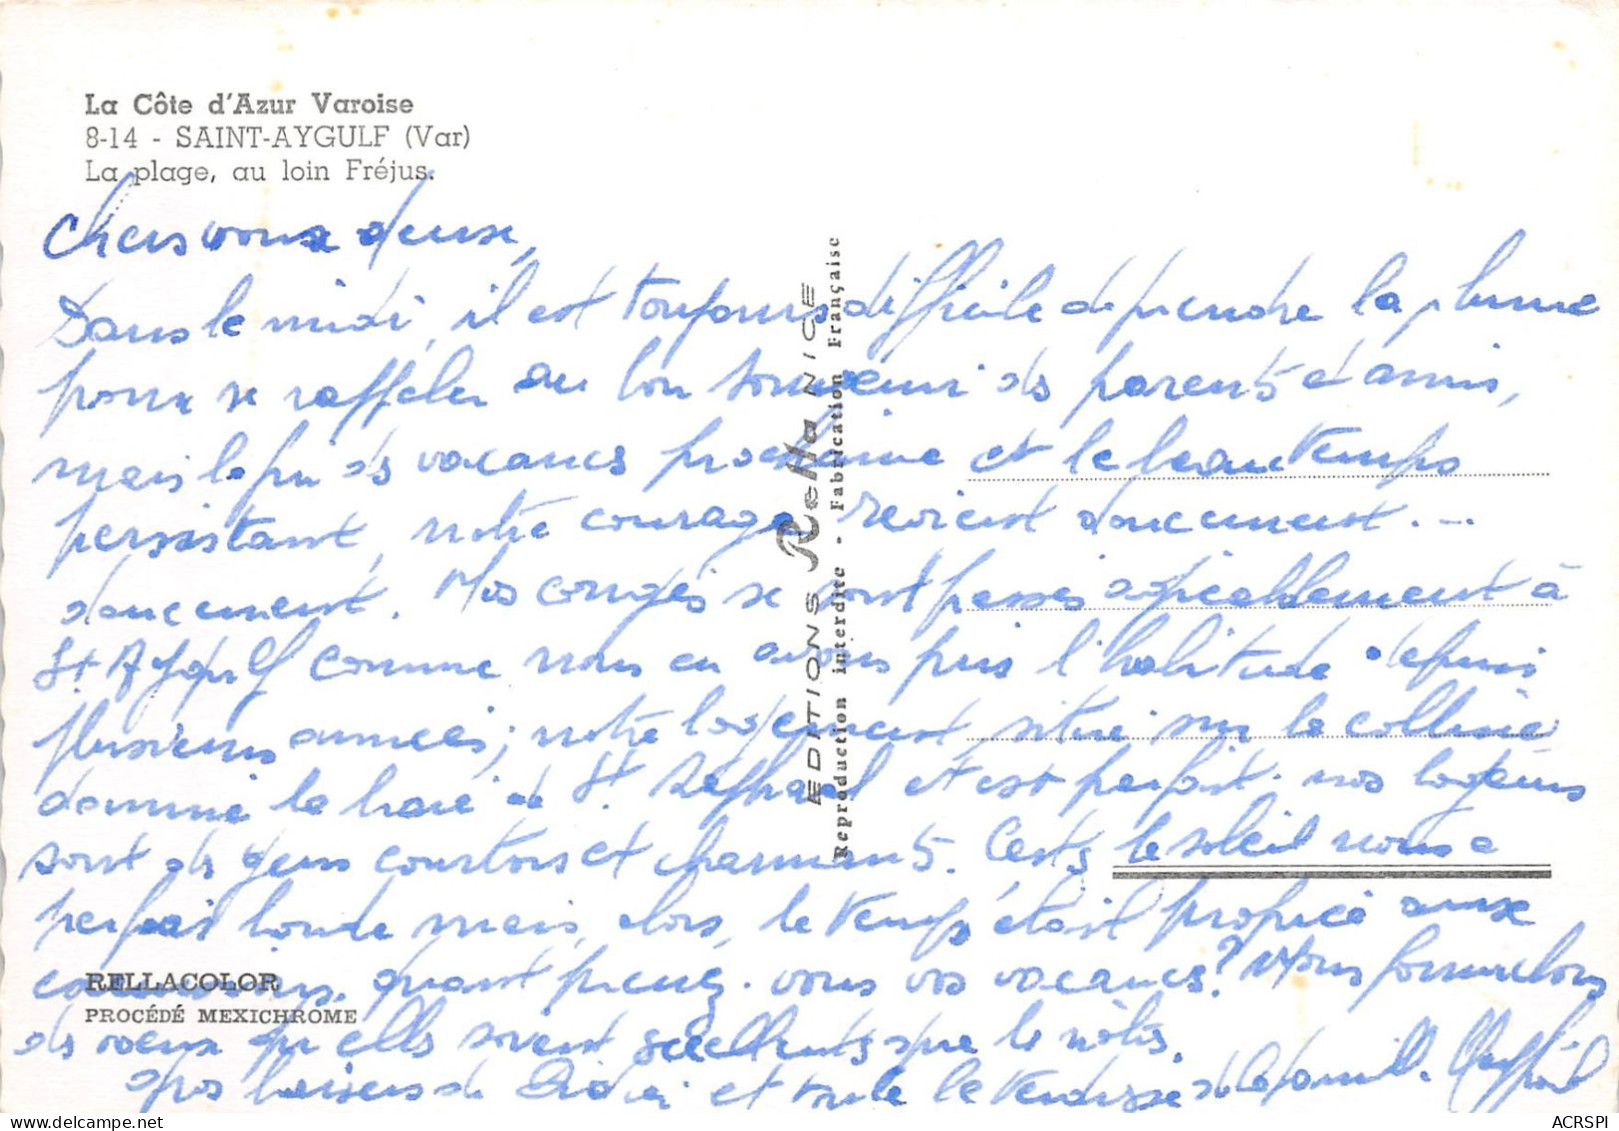 La Côte d'Azur Varoise
8-14 - SAINT-AYGULF (Var)
La plage, au loin Fréjus.
Chers vous deux,
Dans le midi, il est toujours difficile de prendre la plume
pour se rappeler au bon souvenir de parents et amis,
mais la fin des vacances prochaine et le beau temps
persistant, notre courage revient doucement...
doucement. Nos congés se sont passés agréablement à
St Aygulf comme nous en avons pris l'habitude depuis
plusieurs années; notre logement situé sur la colline
domine la baie de St Raphael et est parfait. nos logeurs
sont des gens courtois et charmants. Certes le soleil nous a
parfois boudé mais, alors, le temps était propice aux
excursions. quand prenez-vous vos vacances? Nous formulons
des voeux qu'elles soient excellentes que le nôtres.
Gros baisers de Didier et toute la tendresse de la famille.
EDITIONS Rella NICE
Reproduction interdite - Fabrication Française
RELLACOLOR
PROCÉDÉ MEXICHROME
ACRSPI